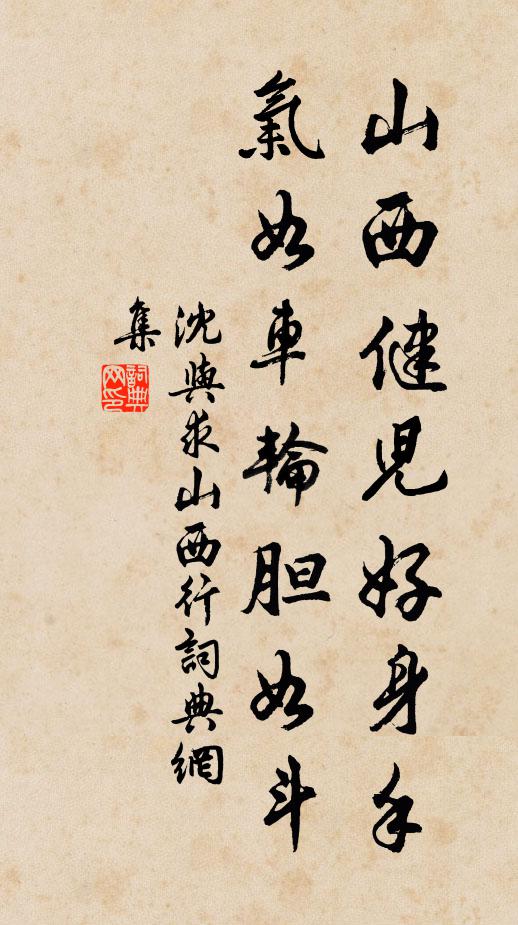 山西健児好身手
氣如車輪胆如斗
沈與求山西行詞典網
集
詞典
网印